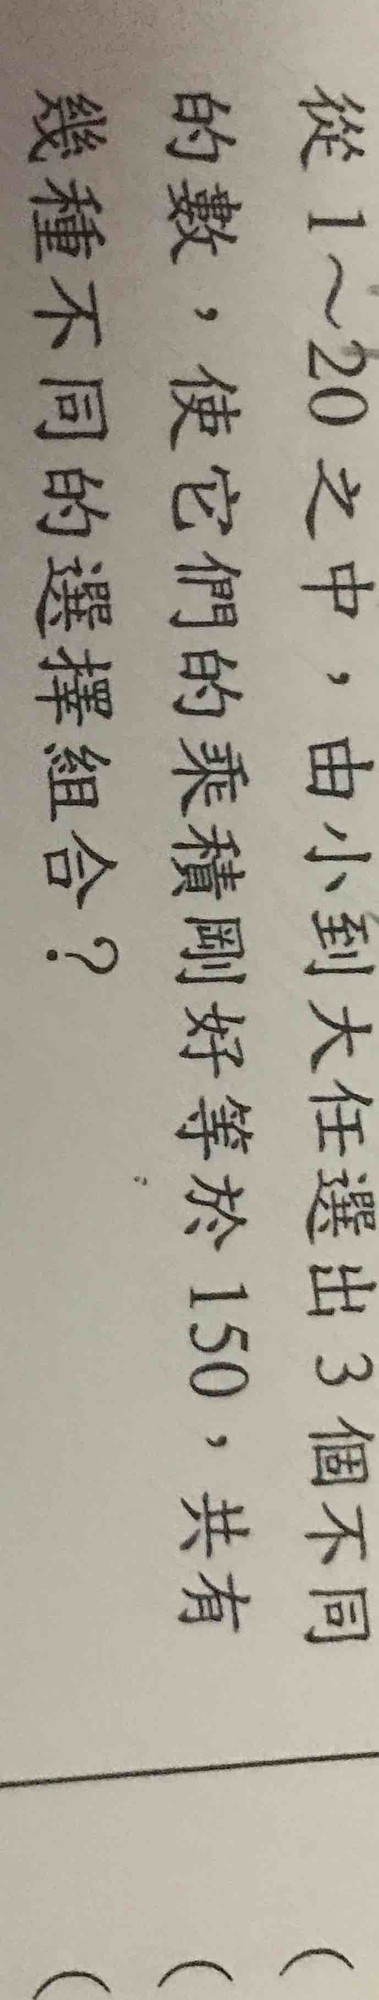 從1～20之中，由小到大任選出3個不同
的數，使它們的乘積剛好等於150，共有
幾種不同的選擇組合？
(
(
(